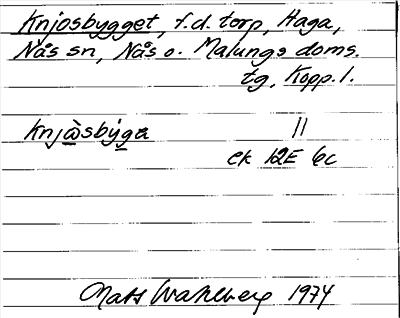 Knjosbygget, f.d. torp, Haga,
Nås sn, Nås o. Malungs doms.
tg, Kopp. l.
Knjàsbýga ||
ek 12E 6c
Mats Wahlberg 1974